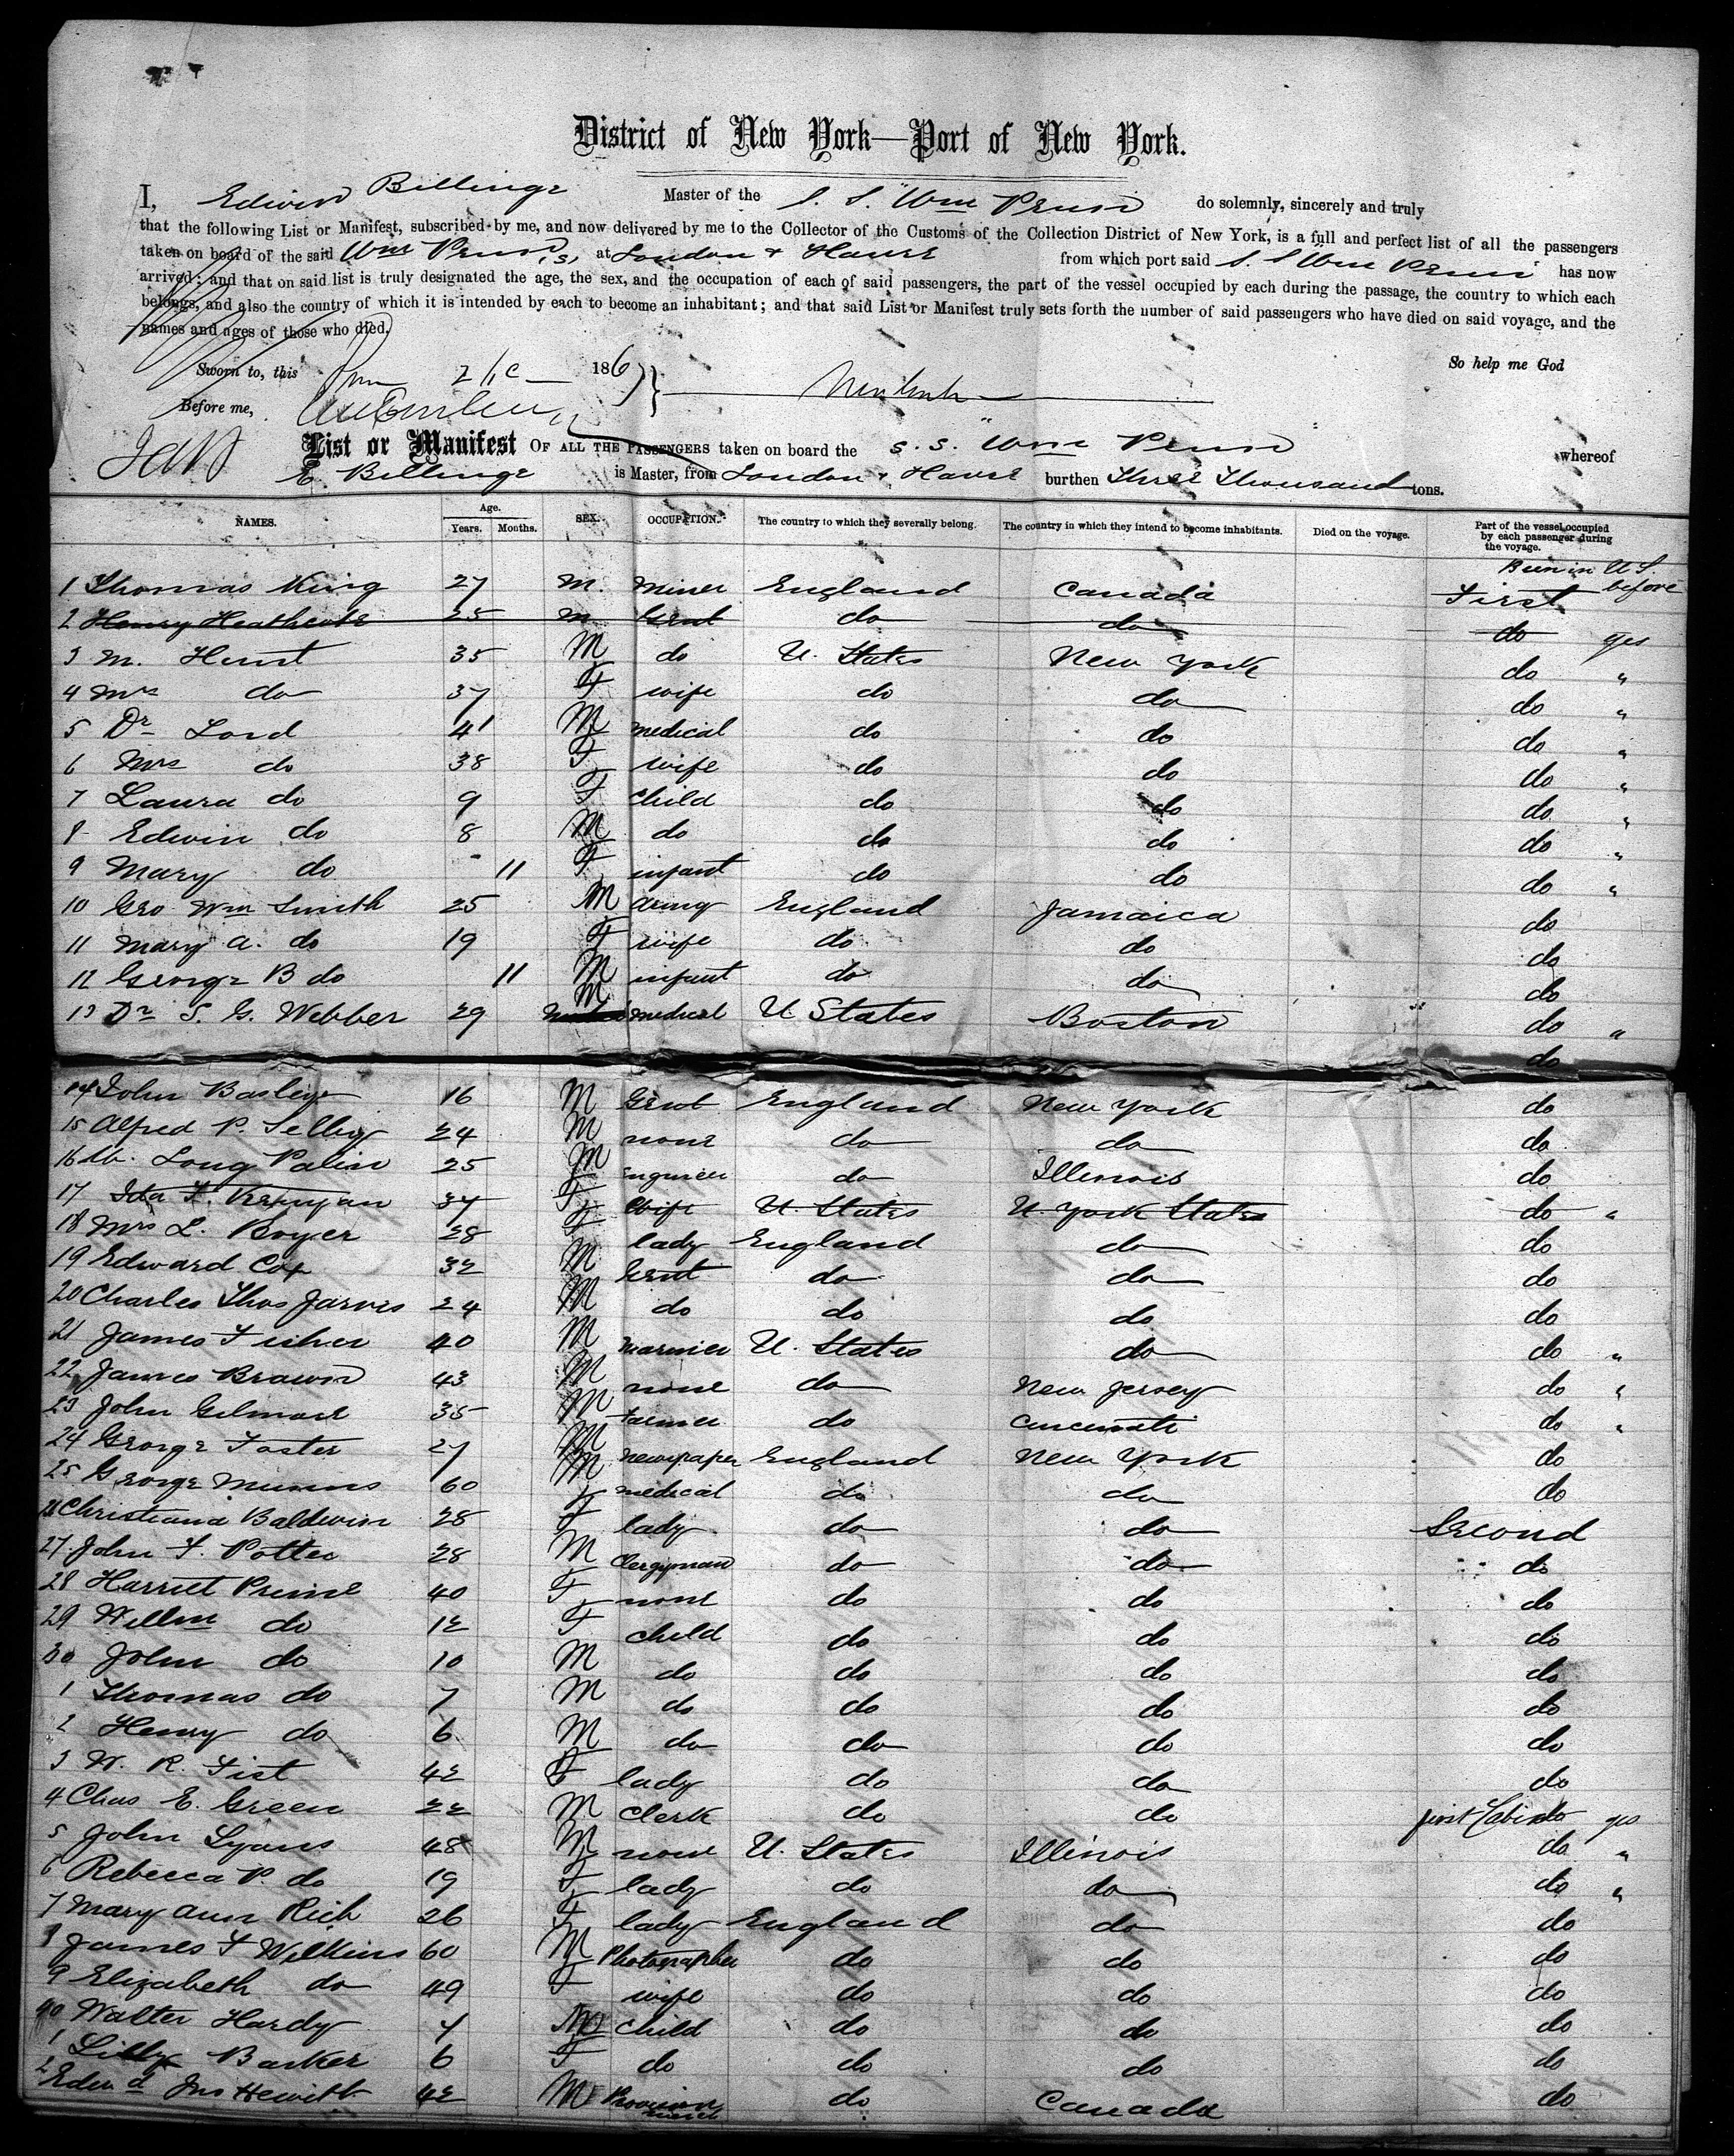 District of New York—Port of New York.
I, Edwin Billinge Master of the S. S. "Wm Penn do solemnly, sincerely and truly
that the following List or Manifest, subscribed by me, and now delivered by me to the Collector of the Customs of the Collection District of New York, is a full and perfect list of all the passengers
taken on board of the said Wm Penn, s, at London & Havre from which port said S. S Wm Penn has now
arrived; and that on said list is truly designated the age, the sex, and the occupation of each of said passengers, the part of the vessel occupied by each during the passage, the country to which each
belongs, and also the country of which it is intended by each to become an inhabitant; and that said List or Manifest truly sets forth the number of said passengers who have died on said voyage, and the
names and ages of those who died.
So help me God
Sworn to, this 186
Before me,
List or Manifest OF ALL THE PASSENGERS taken on board the S. S. "Wm Penn" whereof
E. Billinge is Master, from London & Havre burthen Three Thousand tons.
NAMES. Age. Years. Months. SEX. OCCUPATION. The country to which they severally belong. The country in which they intend to become inhabitants. Died on the voyage. Part of the vessel occupied by each passenger during the voyage.
Been in U S. before
1 Thomas King 27 M. Miner England Canada First
2 Henry Heathcote 25 M Gent do do do yes
3 M. Hunt 35 M do U. States New York do "
4 Mrs do 37 F wife do do do "
5 Dr Lord 41 M medical do do do "
6 Mrs do 38 F wife do do do "
7 Laura do 9 F Child do do do "
8 Edwin do 8 M do do do do "
9 Mary do - 11 F infant do do do "
10 Geo Wm Smith 25 M army England Jamaica do
11 Mary A. do 19 F wife do do do
12 George B do 11 M infant do do do
13 Dr S. G. Webber 29 M medical U States Boston do "
do
14 John Basley 16 M Gent England New York do
15 Alfred P. Selby 24 M none do do do
16 Long Palin 25 M Engineer do Illinois do
17 Ida F. 37 F Wife U. States N. York States do "
18 Mrs L. Boyer 28 F lady England do do
19 Edward Cox 32 M Gent do do do
20 Charles Thos Jarvis 24 M do do do do
21 James Fisher 40 M Mariner U. States do do "
22 James Brown 43 M none do New Jersey do "
23 John Gilmore 35 M farmer do Cincinnati do "
24 George Foster 27 M Newspaper England New York do
25 George Munns 60 M medical do do do
26 Christiana Baldwin 28 F lady do do Second
27 John F. Potter 28 M Clergyman do do do
28 Harriet Prime 40 F none do do do
29 Willm do 12 F child do do do
30 John do 10 M do do do do
1 Thomas do 7 M do do do do
2 Henry do 6 M do do do do
3 W. R. Fist 42 F lady do do do
4 Chas E. Green 22 M Clerk do do first Cabin do yes
5 John Lyons 48 M none U. States Illinois do "
6 Rebecca P. do 19 F lady do do do "
7 Mary Ann Rich 26 F lady England do do
8 James F Wilkins 60 M Photographer do do do
9 Elizabeth do 49 F wife do do do
40 Walter Hardy 7 M Child do do do
1 Lilly Barker 6 F do do do do
2 Edwd Jno Hewitt 42 M Provision do Canada do